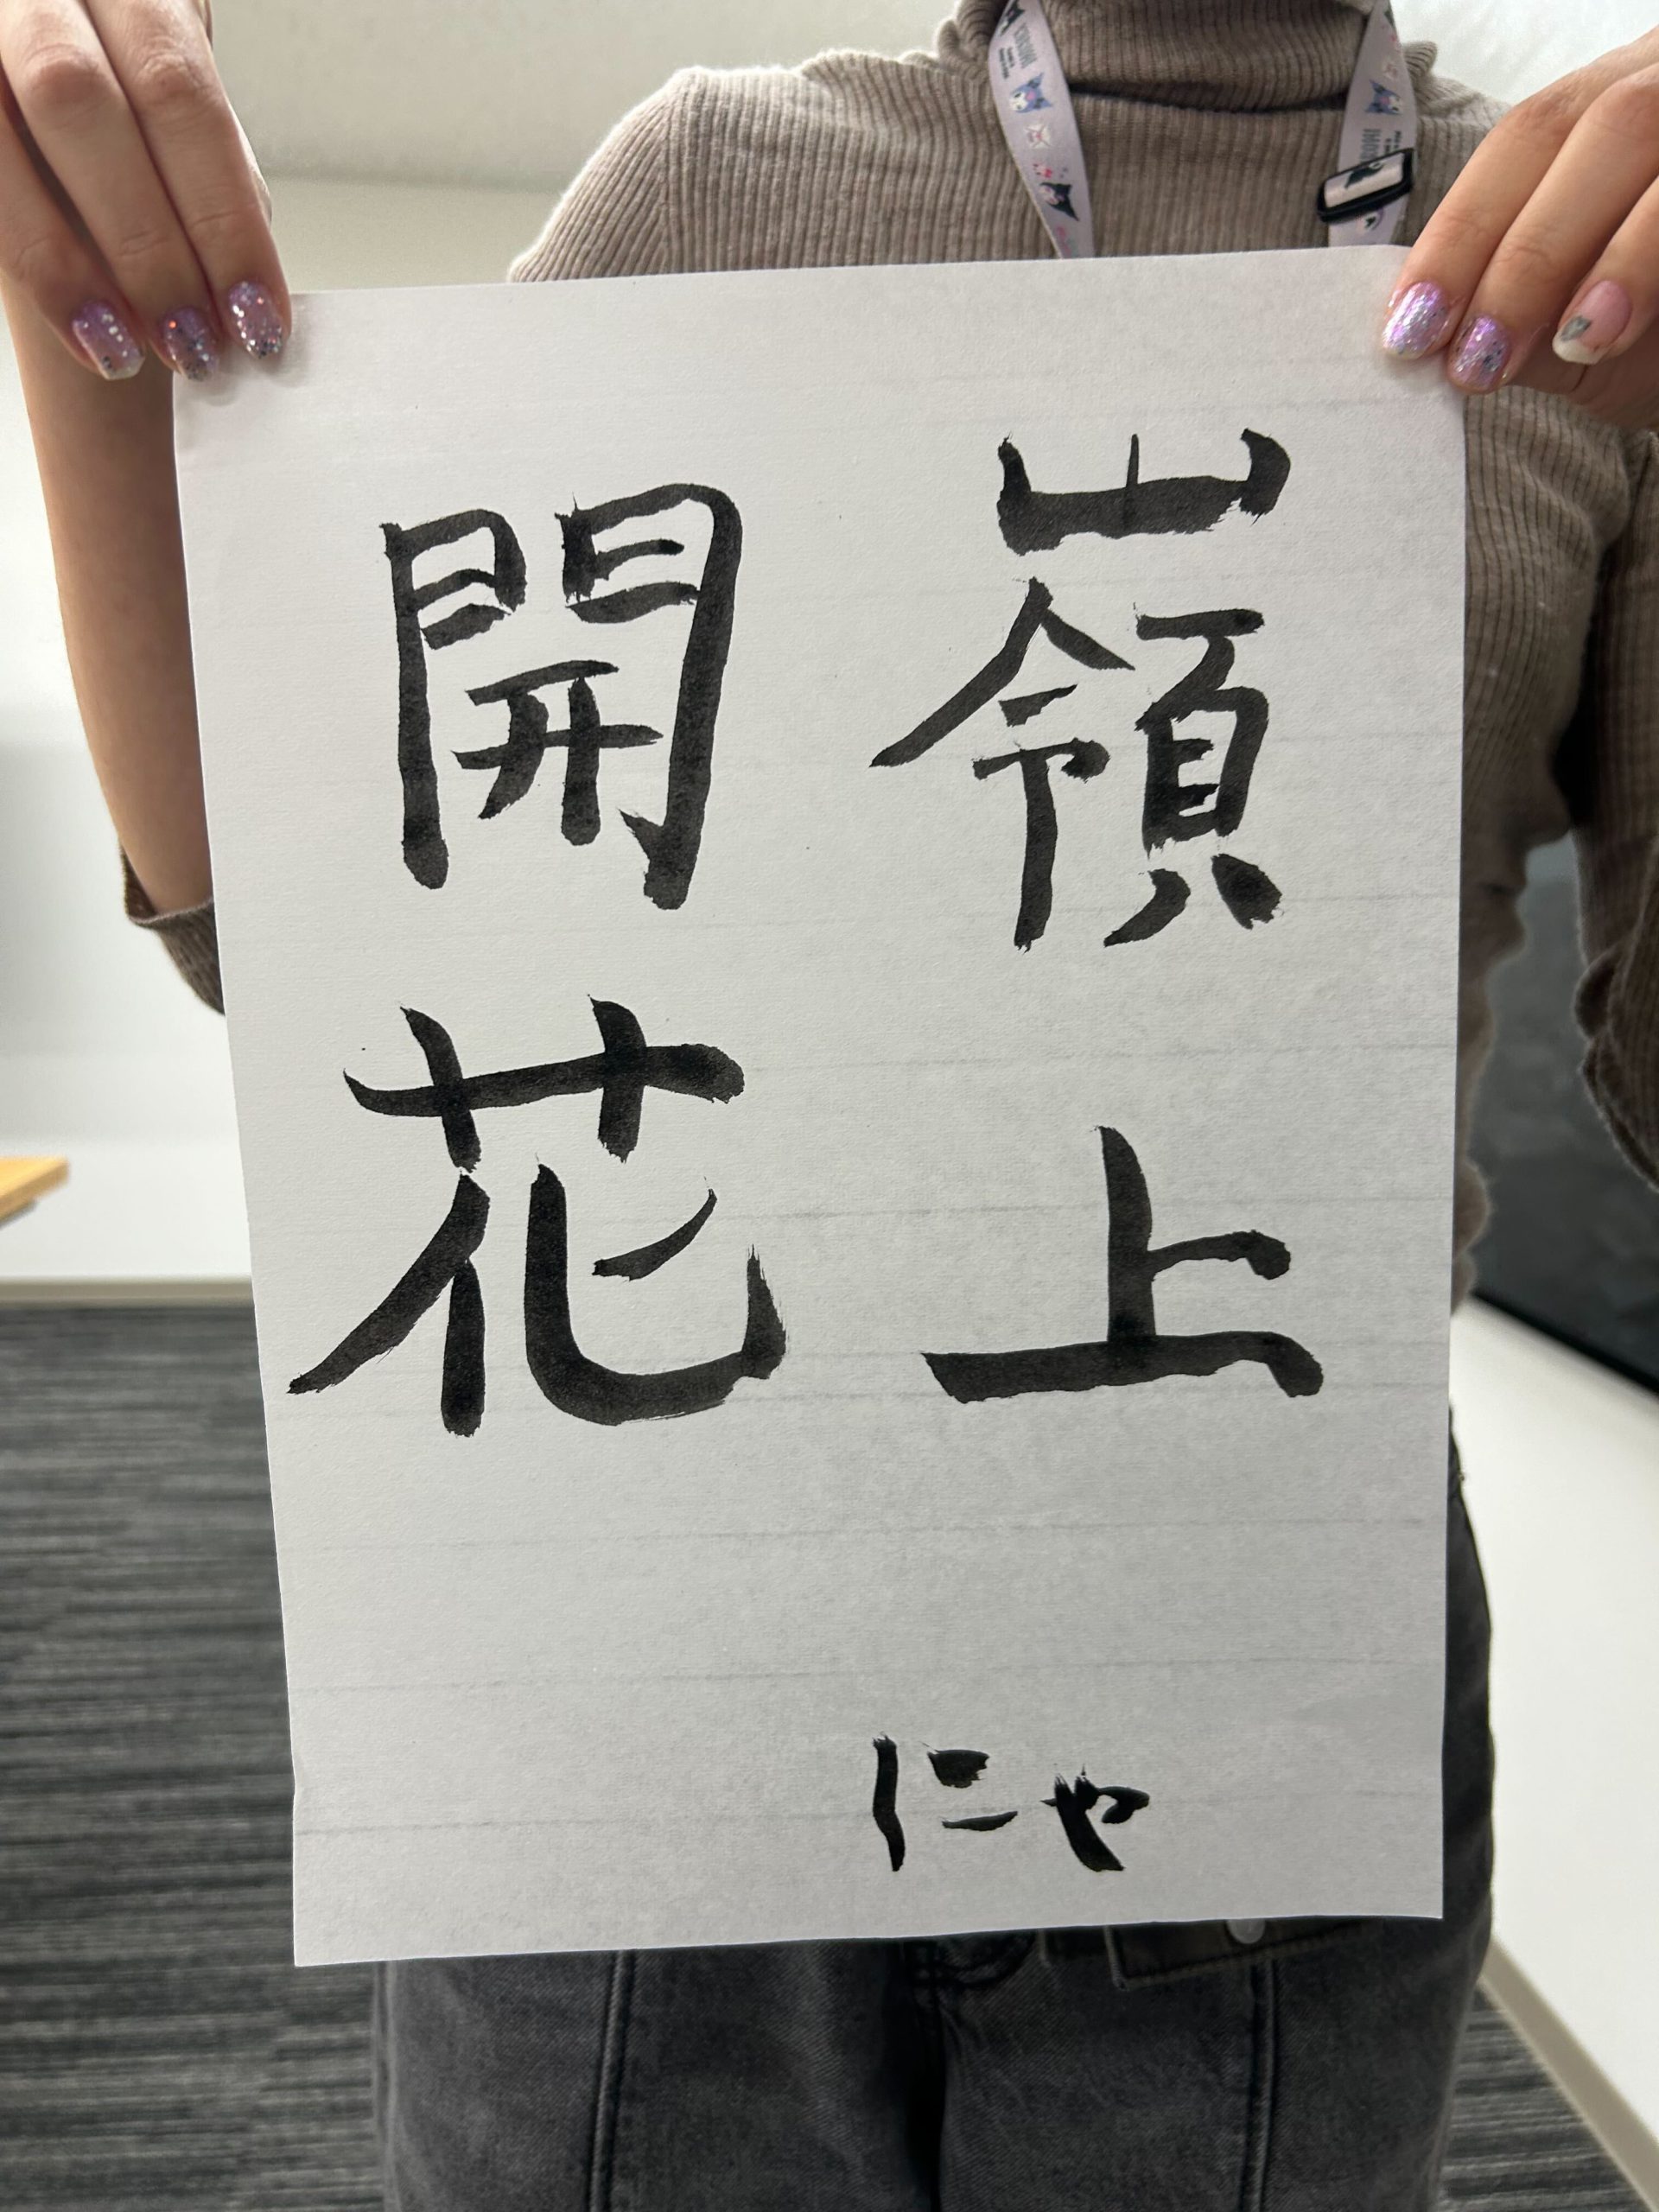 嶺上
開花
にゃ